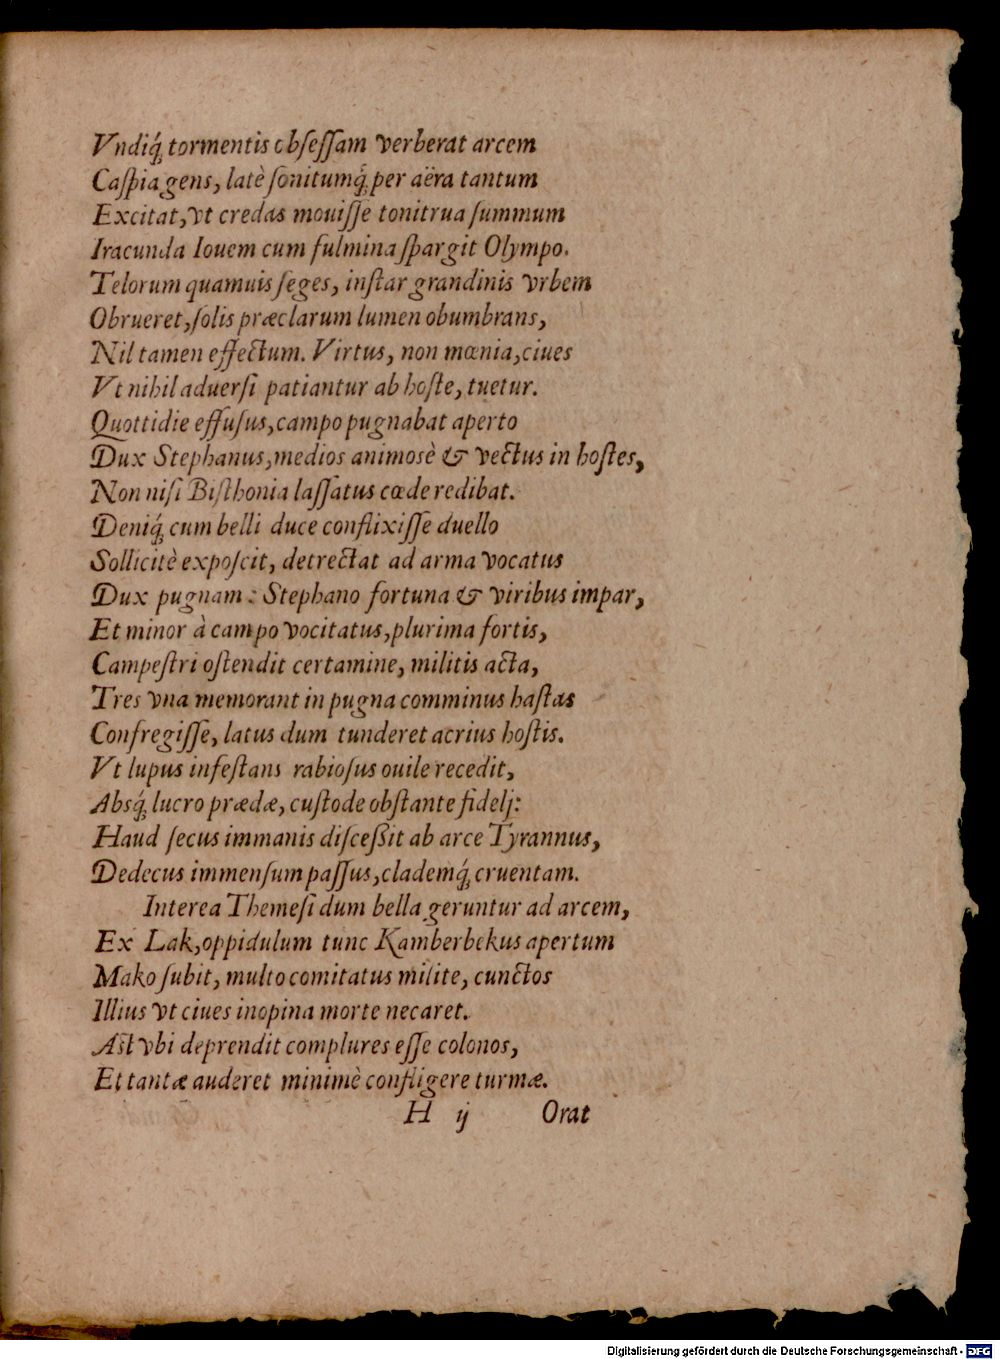 Vndiq́; tormentis obſeſſam verberat arcem
Caſpia gens, latè ſonitumq́; per aëra tantum
Excitat, vt credas mouiſſe tonitrua ſummum
Iracunda Iouem cum fulmina ſpargit Olympo.
Telorum quamuis ſeges, inſtar grandinis vrbem
Obrueret, ſolis præclarum lumen obumbrans,
Nil tamen effectum. Virtus, non mœnia, ciues
Vt nihil aduerſi patiantur ab hoſte, tuetur.
Quottidie effuſus, campo pugnabat aperto
Dux Stephanus, medios animosè & vectus in hoſtes,
Non niſi Biſthonia laſſatus cœde redibat.
Deniq́; cum belli duce conflixiſſe duello
Sollicitè expoſcit, detrectat ad arma vocatus
Dux pugnam: Stephano fortuna & viribus impar,
Et minor à campo vocitatus, plurima fortis,
Campeſtri oſtendit certamine, militis acta,
Tres vna memorant in pugna comminus haſtas
Confregiſſe, latus dum tunderet acrius hoſtis.
Vt lupus infeſtans rabioſus ouile recedit,
Absq́; lucro prædæ, cuſtode obſtante fidelj:
Haud ſecus immanis diſceßit ab arce Tyrannus,
Dedecus immenſum paſſus, clademq́; cruentam.
Interea Themeſi dum bella geruntur ad arcem,
Ex Lak, oppidulum tunc Kamberbekus apertum
Mako ſubit, multo comitatus milite, cunctos
Illius vt ciues inopina morte necaret.
Aſt vbi deprendit complures eſſe colonos,
Et tantæ auderet minimè confligere turmæ.
H ij Orat
Digitalisierung gefördert durch die Deutsche Forschungsgemeinschaft - DFG